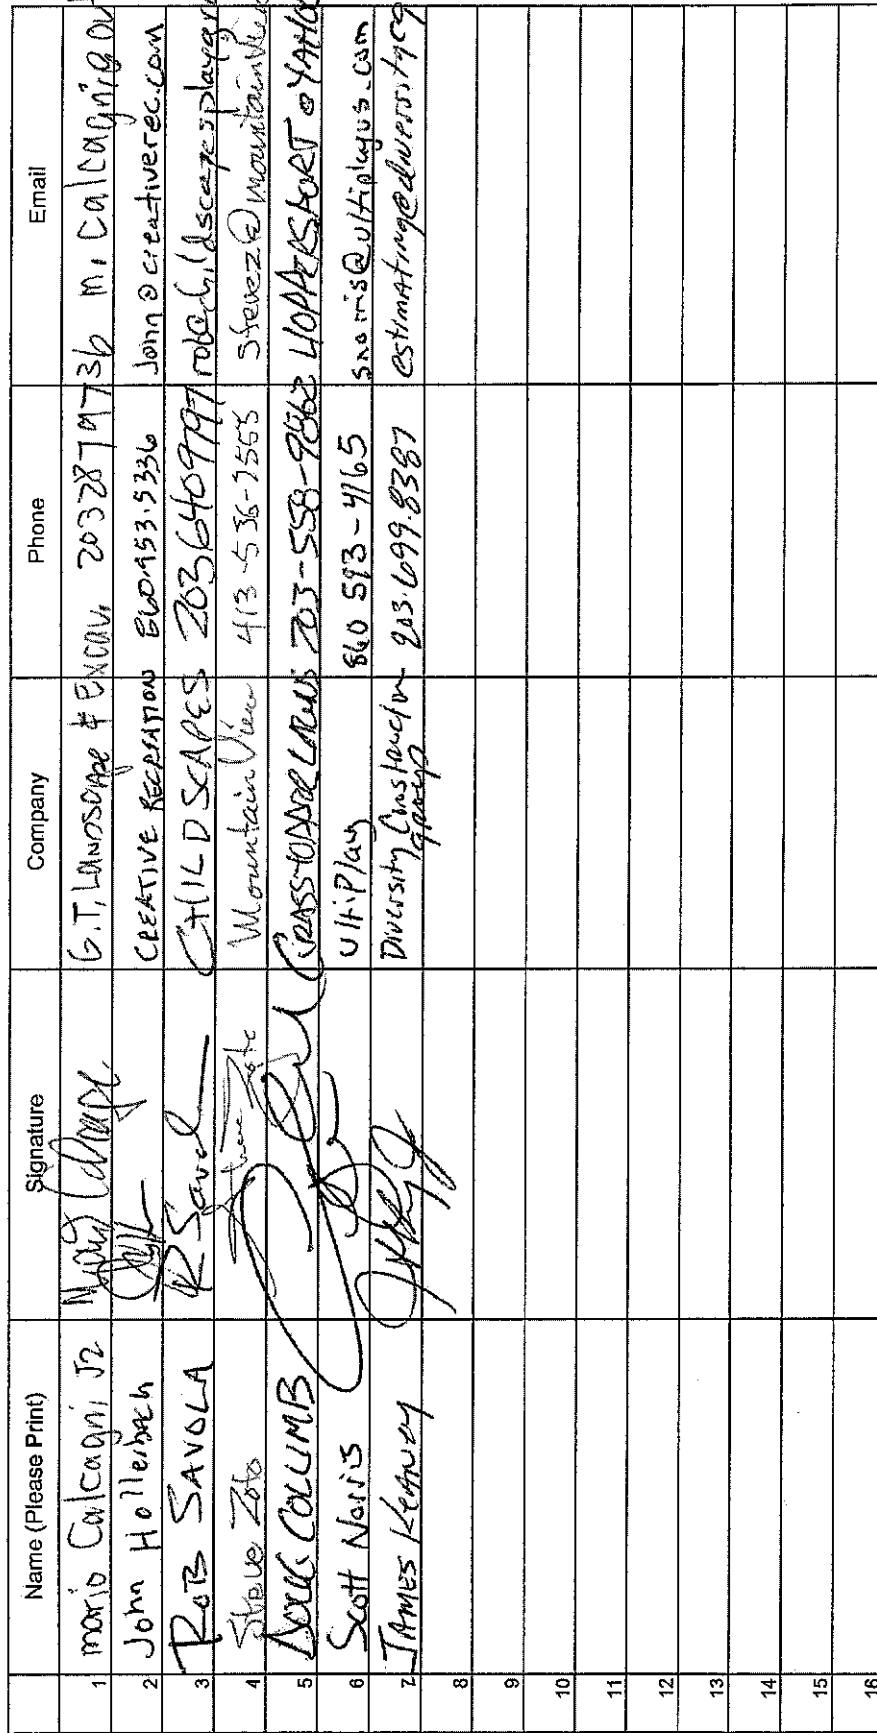 Name (Please Print) Signature Company Phone Email
1 mario Calcagni JR G.T. LANDSCAPE & Excav. 2032879736 m.calcagni@
2 John Hollerbach CREATIVE RECREATION 860.953.5336 John@creativerec.com
3 ROB SAVOLA R Savol CHILDSCAPES 2036409797
4 Steve Zoto Steve Zoto Mountain View 413-536-7555 Stevez@mountainview
5 DOUG COLLIMB GRASSHOPPER LAWNS 203-558-9862 HOPPERSPORT@YAHOO
6 Scott Norris UltiPlay 860 593-4165 snorris@ultiplayus.com
7 JAMES Diversity Construction Group 203.699.8387 estimating@diversitycg
8
9
10
11
12
13
14
15
16